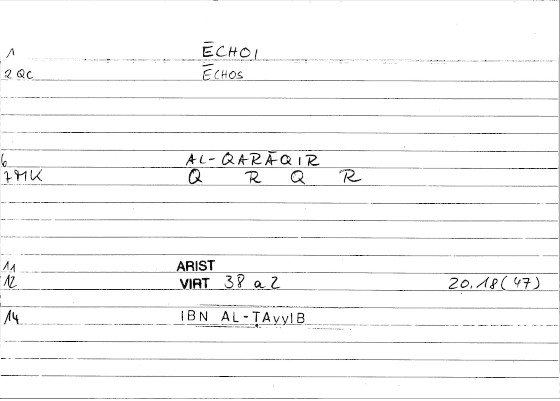 1 ĒCHOI
2 QC ĒCHOS
6 AL-QARĀQIR
7 MK Q R Q R
11 ARIST
12 VIRT 38 a 2 20.18(47)
14 IBN AL-ṬAyyIB